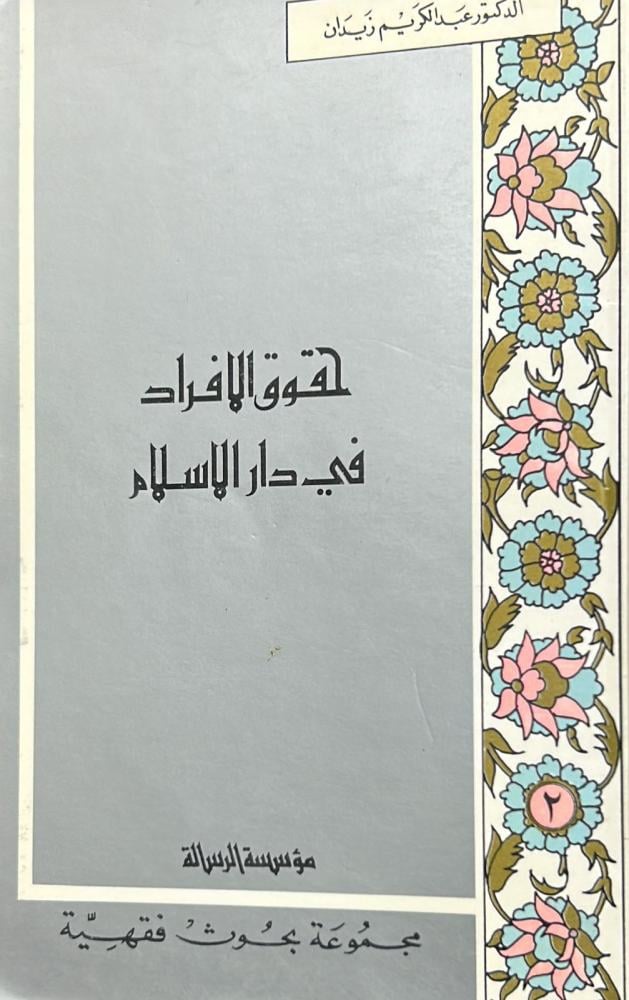 الدكتور عبد الكريم زيدان
حقوق الافراد
في دار الاسلام
٢
مؤسسة الرسالة
مجموعة بحوث فقهية